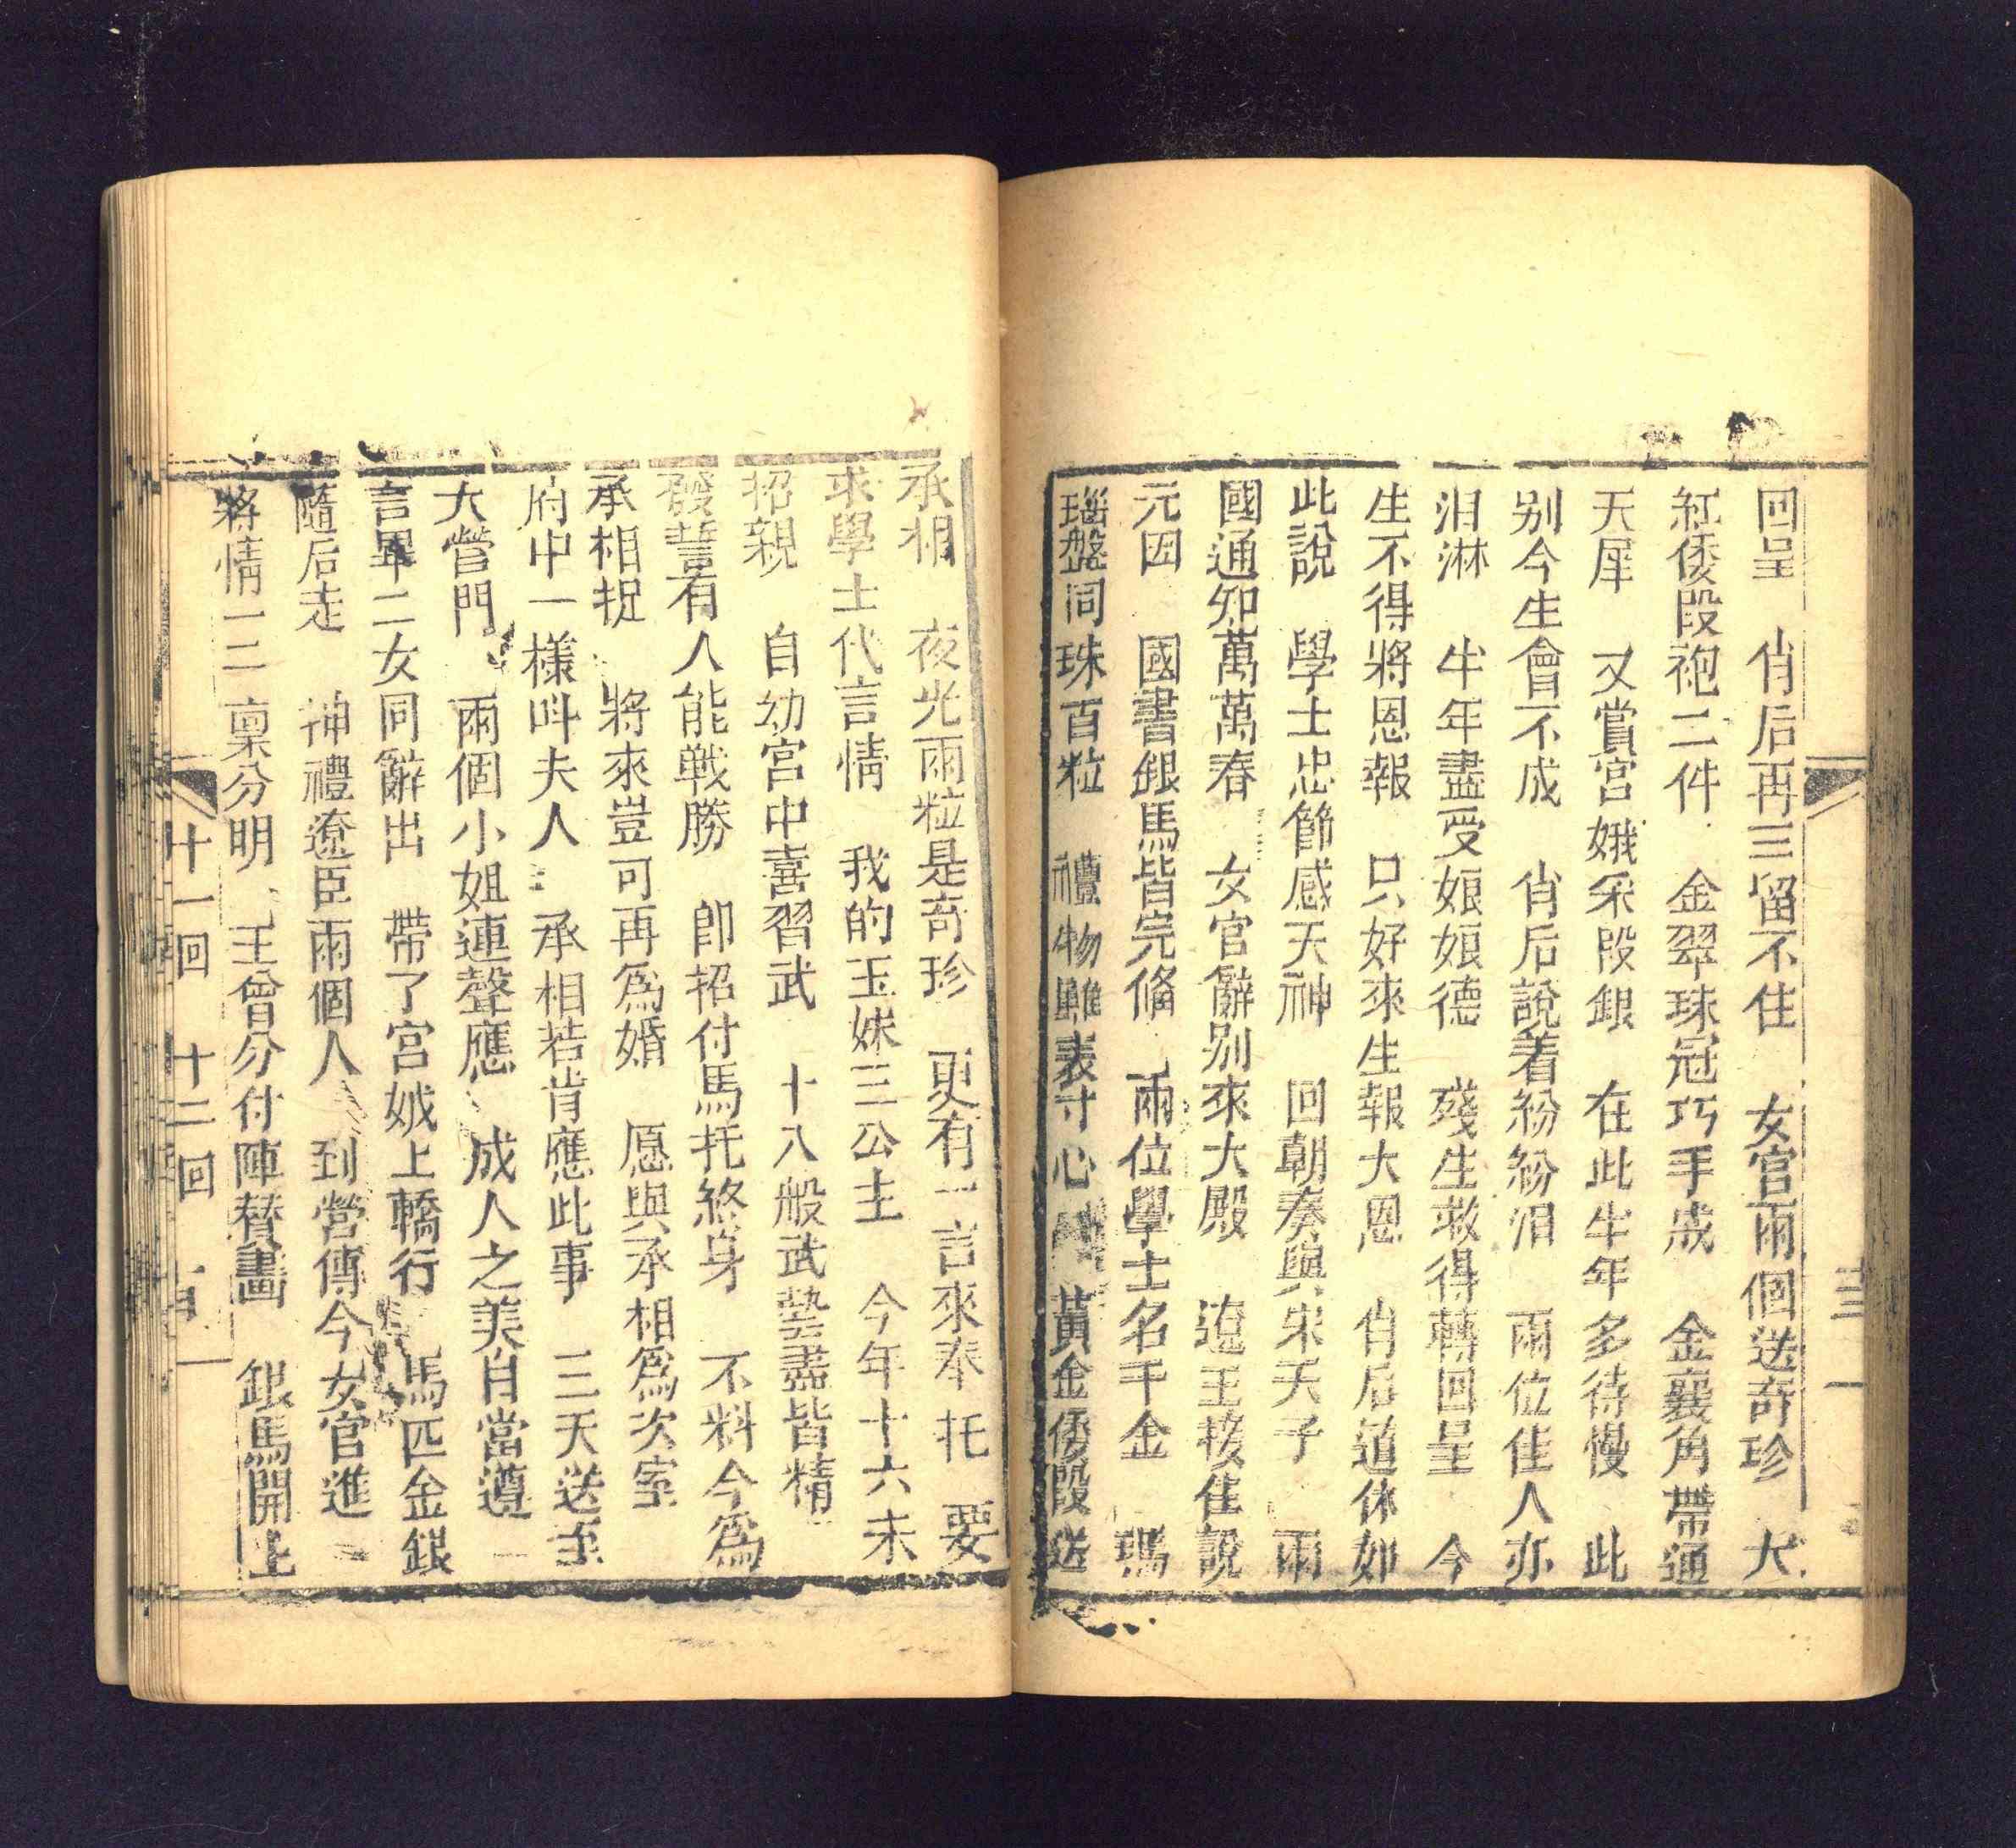 回呈　俏后再三留不住　女官兩個送奇珍　大
紅倭段袍二件　金翠珠冠巧手成　金襄角帶通
天犀　又賞宮娥采段銀　在此半年多待慢　此
别今生會不成　俏后說着紛紛泪　兩位佳人亦
泪淋　半年盡受娘娘德　殘生救得轉回呈　今
生不得將恩報　只好來生報大恩　俏后道休如
此說　學士忠節感天神　回朝奏與宋天子　兩
國通和萬萬春　女官辭別來大殿　遼王接住說
元因　國書銀馬皆完俻　兩位學士名千金　瑪
瑙盤同珠百粒　禮物雖表寸心　黃金倭段送
承相　夜光兩粒是奇珍　更有一言來奉托　要
求學士代言情　我的玉妹三公主　今年十六未
招親　自幼宮中喜習武　十八般武藝盡皆精
發誓有人能戰勝　卽招付馬托終身　不料今爲
承相捉　將來豈可再爲婚　愿與承相爲次室
府中一樣叫夫人　承相若肯應此事　三天送至
大營門　兩個小姐連聲應　成人之美自當遵
言畢二女同辭出　帶了宮娥上轎行　馬匹金銀
隨后走　神禮遼臣兩個人　到營傳令女官進
將情一二稟分明　王曾分付陣替畵　銀馬開上
十一回　十二回